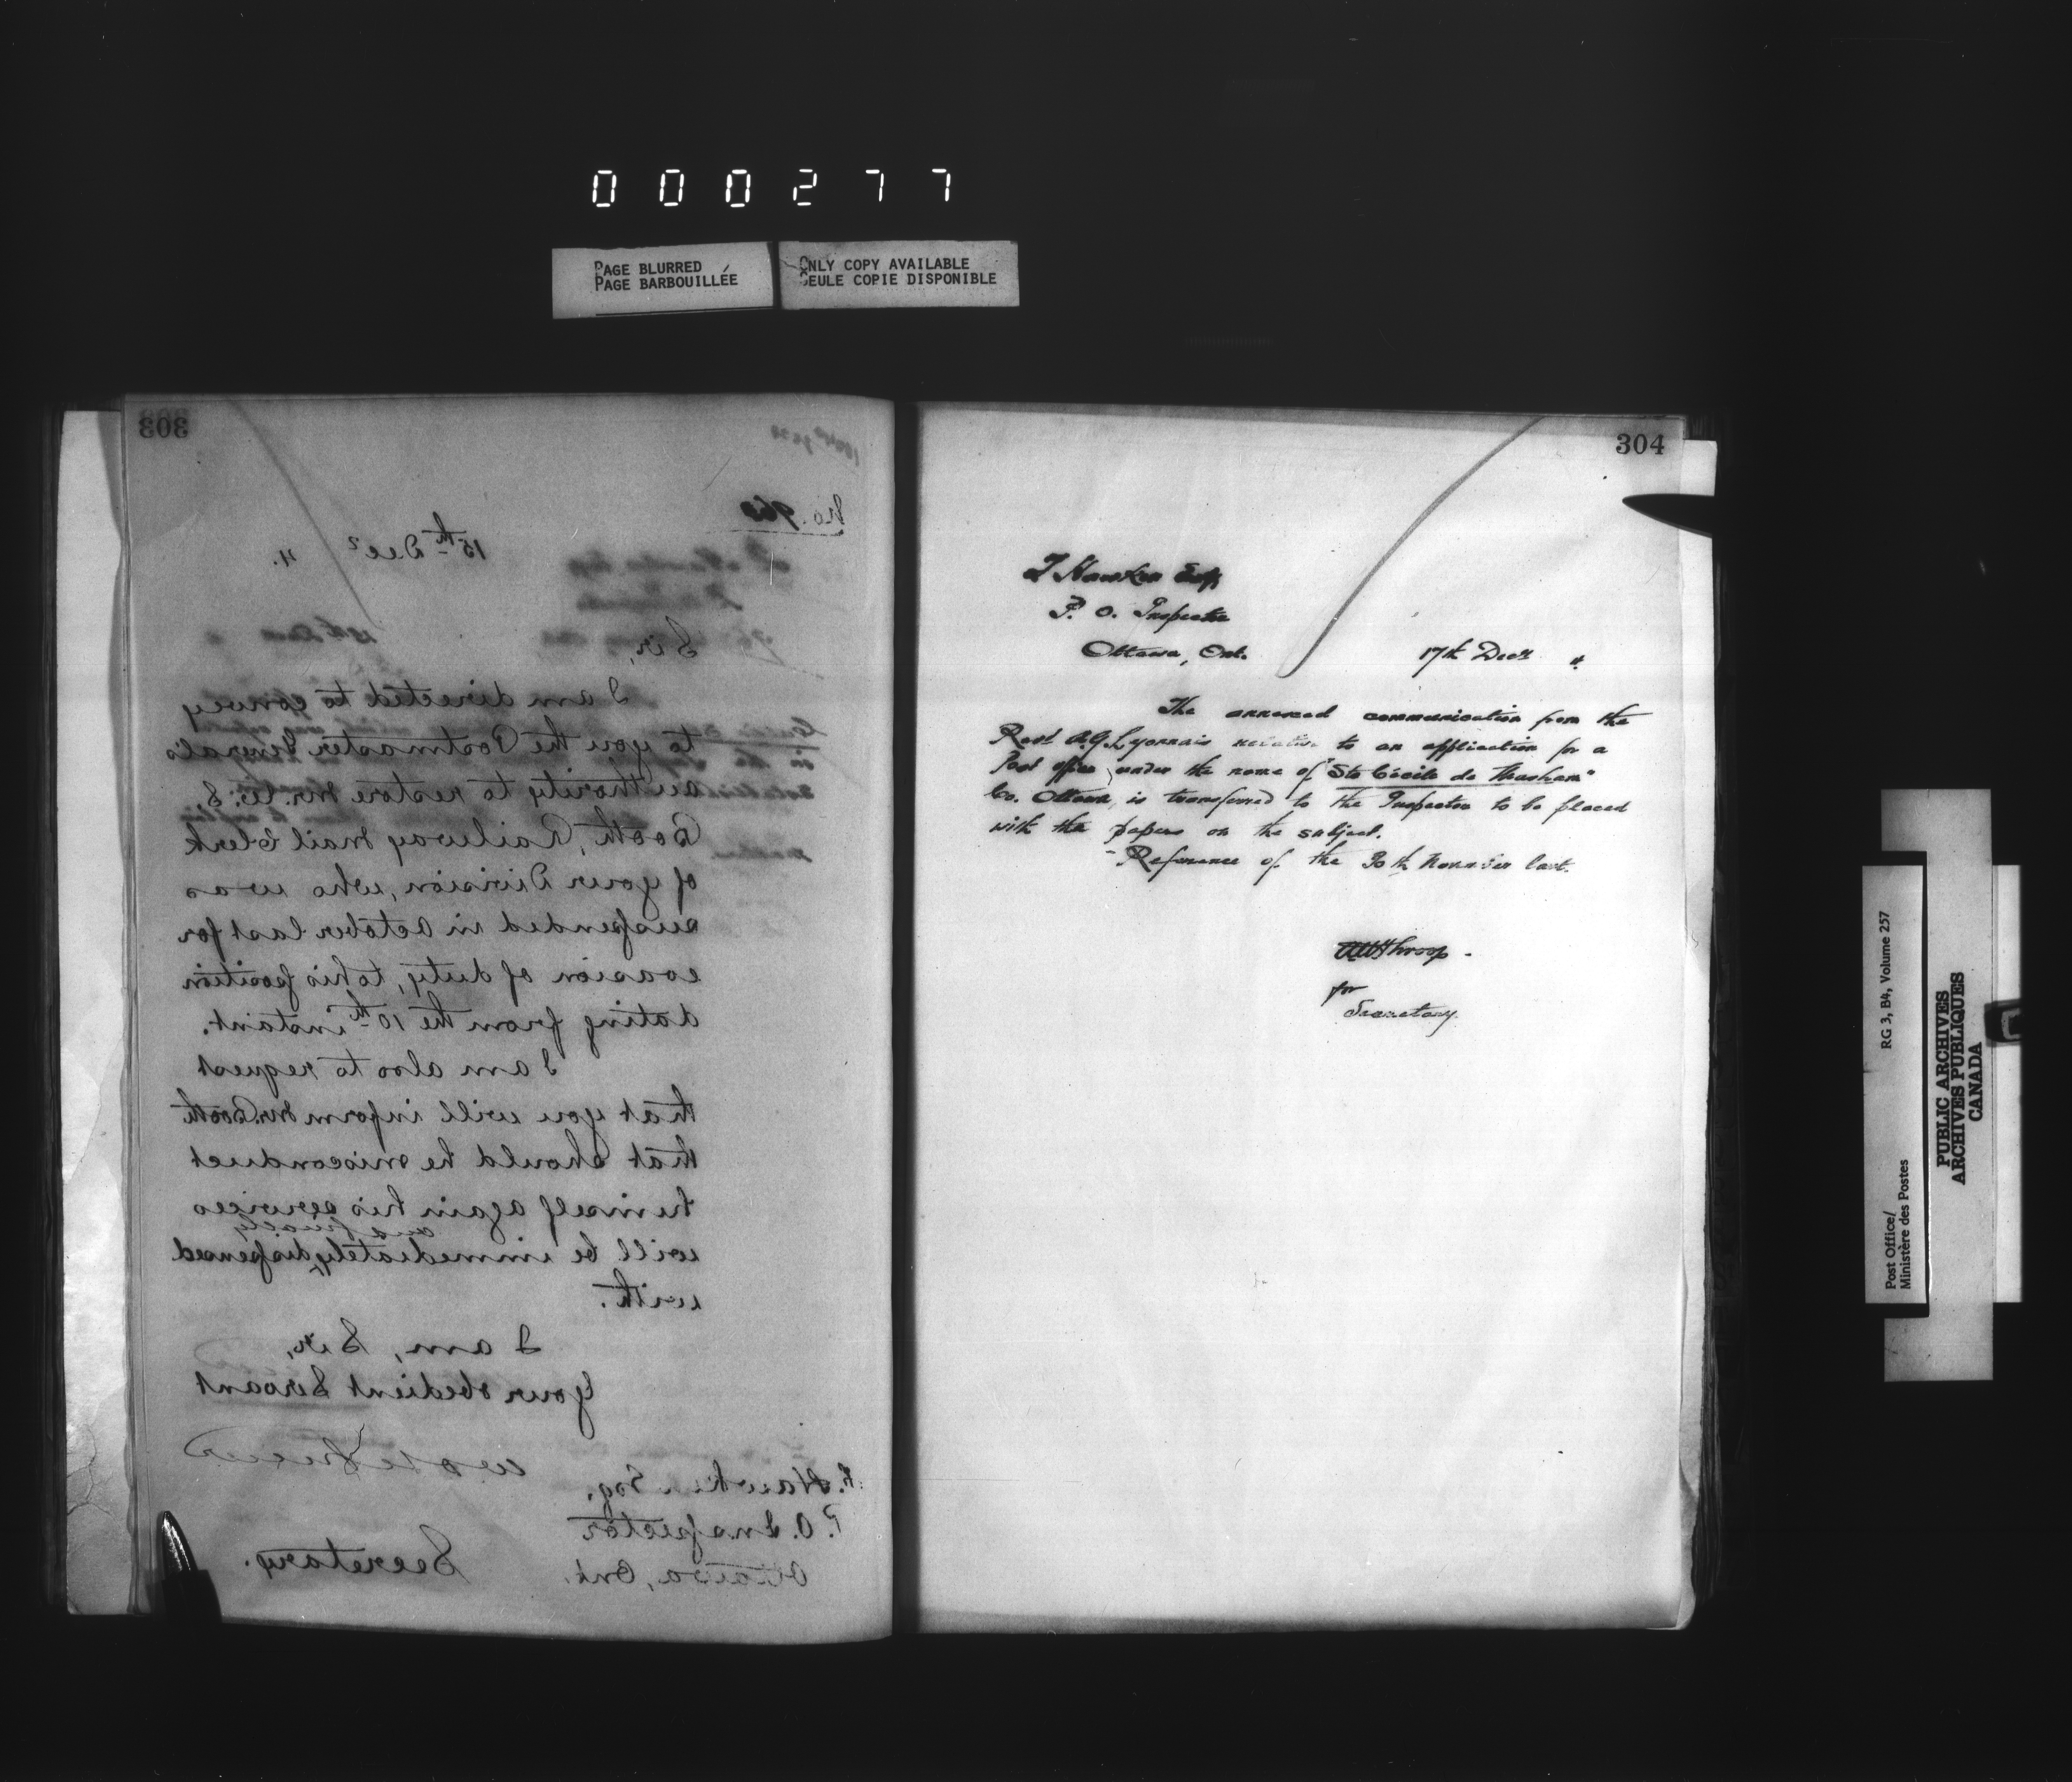 000277
PAGE BLURRED
PAGE BARBOUILLÉE
ONLY COPY AVAILABLE
SEULE COPIE DISPONIBLE
303
No. 960
15th Decr 4.
Sir,
I am directed to convey
to you the Postmaster General's
authority to restore Mr. W. S.
Booth, Railway Mail Clerk
of your Division, who was
suspended in October last for
evasion of duty, to his position
dating from the 10th instant.
I am also to request
that you will inform Mr. Booth
that should he misconduct
himself again his services
and finally
will be immediately dispensed
with.
I am, Sir,
Your obedient Servant
Secretary.
Hawken Esq,
P.O. Inspector
Ottawa, Ont.
304
Hawken Esq
P. O. Inspector
Ottawa, Ont.
17th Decr 4
The annexed communication from the
Revd A.G. Lyonnais relative to an application for a
Post office under the name of "Ste Cécile de Masham"
Co. Ottawa, is transferred to the Inspector to be placed
with the papers on the subject.
Reference of the 30th November last.
Throop.
for
Secretary.
RG 3, B4, Volume 257
Post Office/
Ministère des Postes
PUBLIC ARCHIVES
ARCHIVES PUBLIQUES
CANADA